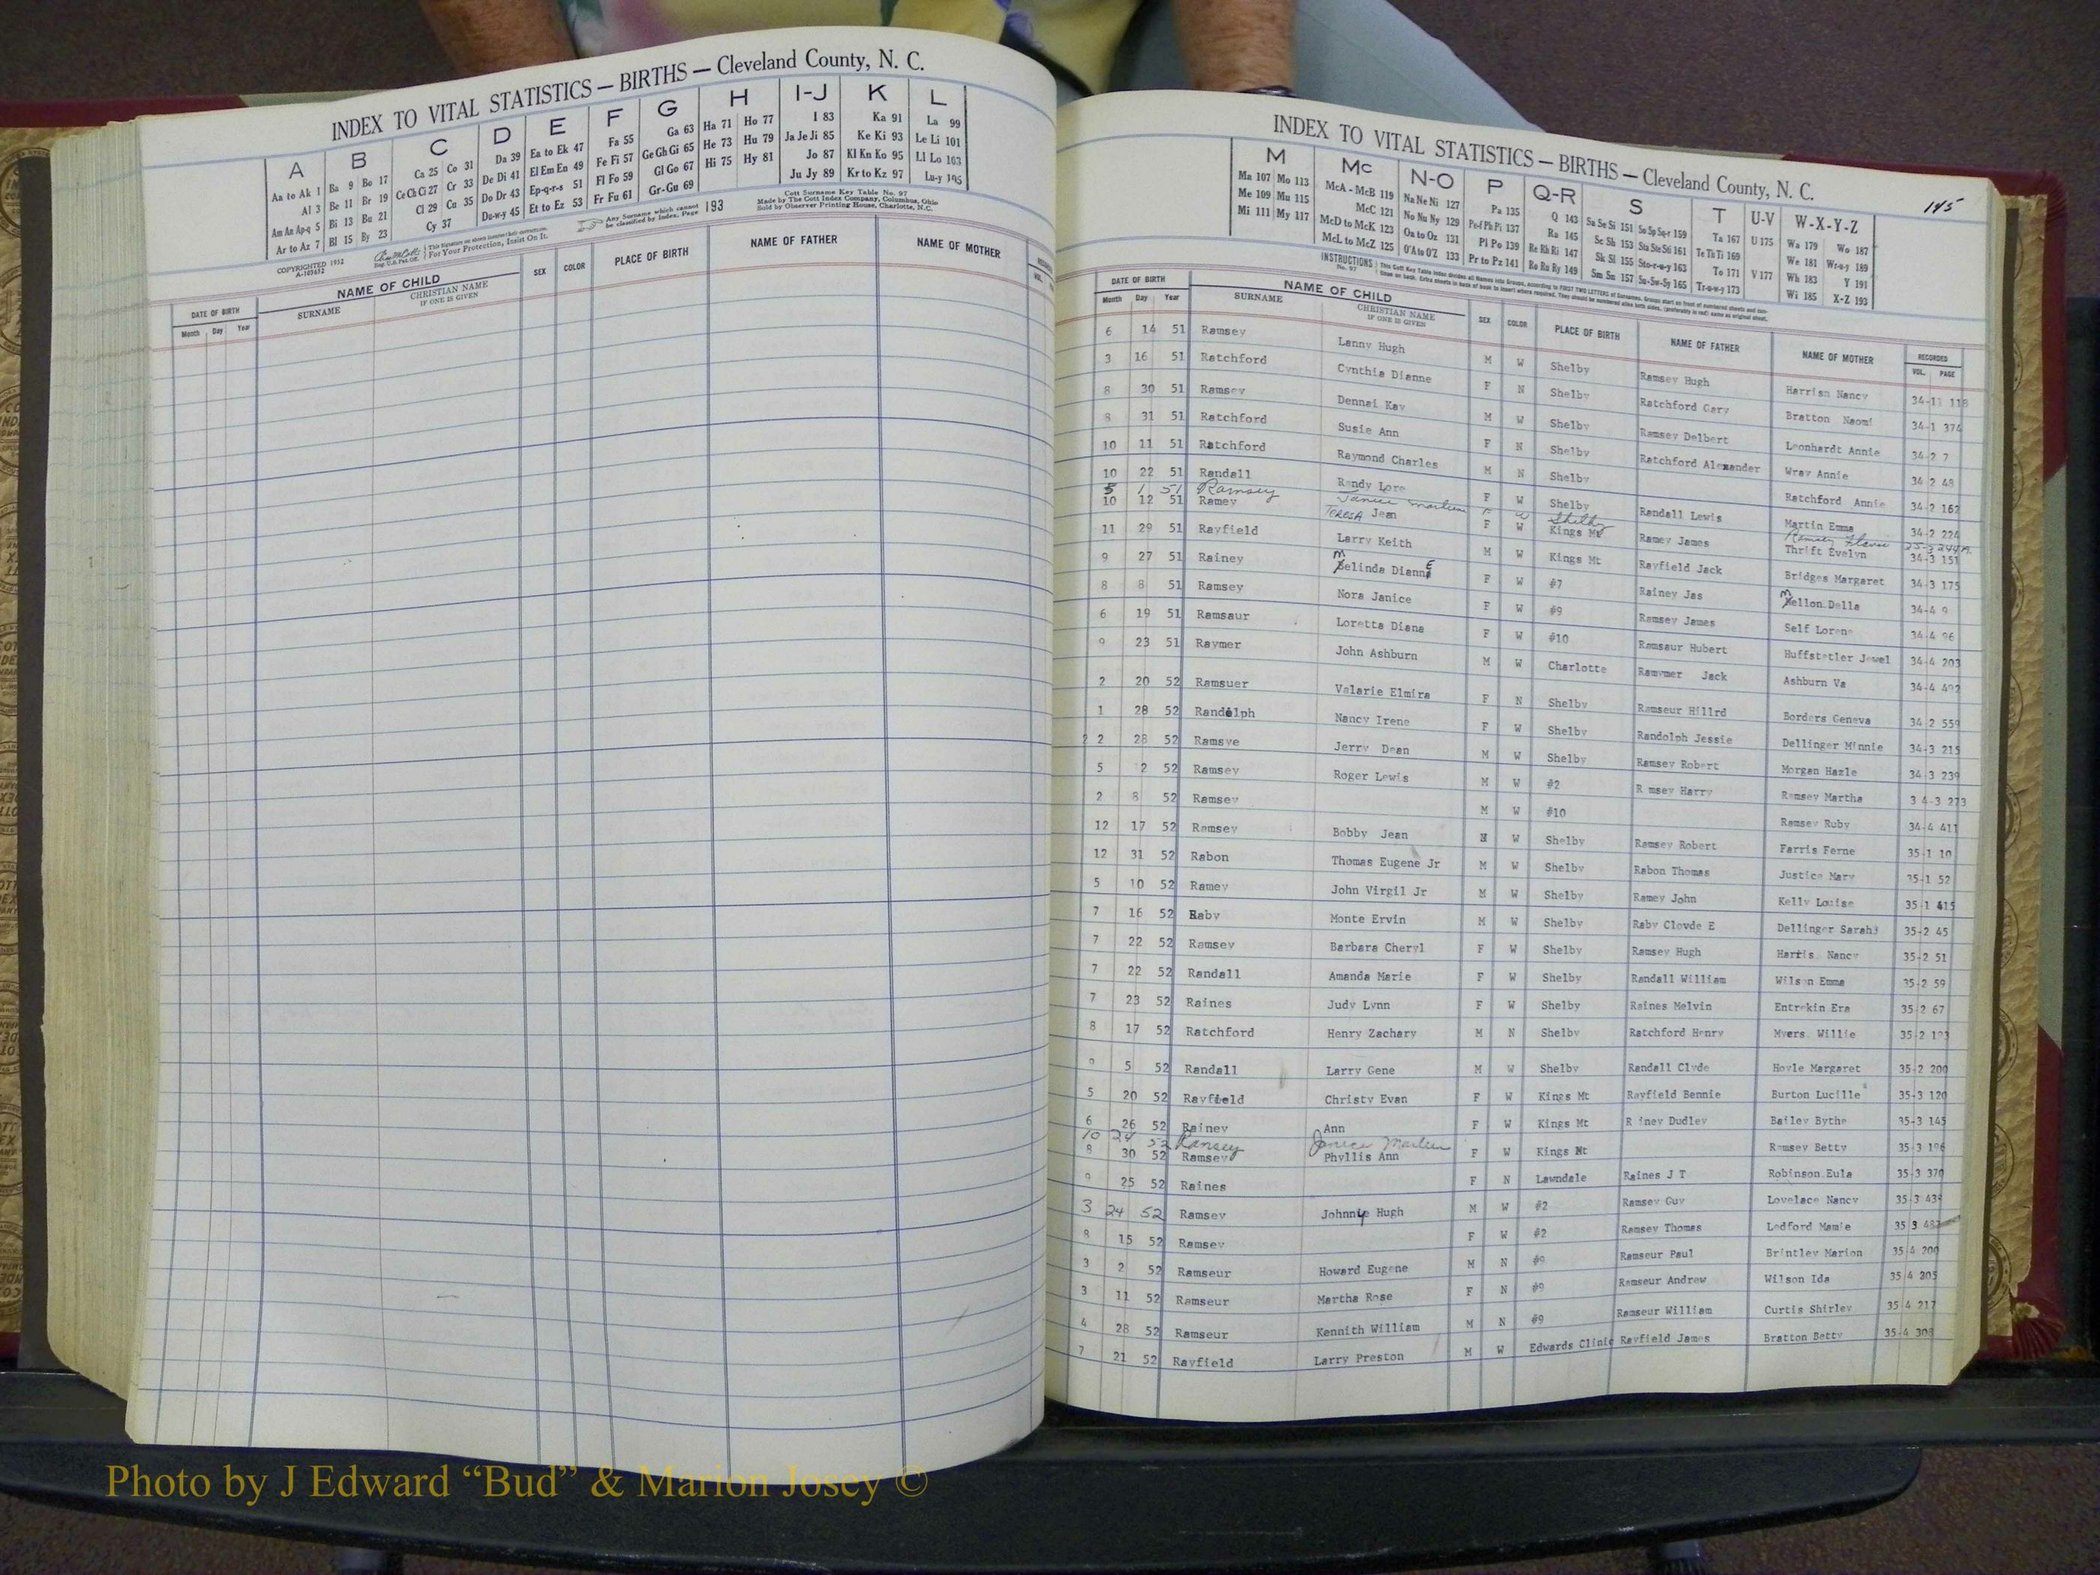 INDEX TO VITAL STATISTICS — BIRTHS — Cleveland County, N. C.
A B C D E F G H I-J K L
Aa to Ak 1 Ba 9 Bo 17 Ca 25 Co 31 Da 39 Ea to Ek 47 Fa 55 Ga 63 Ha 71 Ho 77 I 83 Ka 91 La 99
Al 3 Be 11 Br 19 Ce Ch Ci 27 Cr 33 De Di 41 El Em En 49 Fe Fi 57 Ge Gh Gi 65 He 73 Hu 79 Ja Je Ji 85 Ke Ki 93 Le Li 101
Am An Ap-q 5 Bi 13 Bu 21 Cl 29 Cu 35 Do Dr 43 Ep-q-r-s 51 Fl Fo 59 Gl Go 67 Hi 75 Hy 81 Jo 87 Kl Kn Ko 95 Ll Lo 103
Ar to Az 7 Bl 15 By 23 Cy 37 Du-w-y 45 Et to Ez 53 Fr Fu 61 Gr-Gu 69 Ju Jy 89 Kr to Kz 97 Lu-y 105
COPYRIGHTED 1952
A-103652
This Signature on above instructions
For Your Protection, Insist On It.
Any Surname which cannot be classified by Index, Page 193
Cott Surname Key Table No. 97
Made by The Cott Index Company, Columbus, Ohio
Sold by Observer Printing House, Charlotte, N.C.
DATE OF BIRTH NAME OF CHILD SEX COLOR PLACE OF BIRTH NAME OF FATHER NAME OF MOTHER
Month Day Year SURNAME CHRISTIAN NAME IF ONE IS GIVEN
INDEX TO VITAL STATISTICS — BIRTHS — Cleveland County, N. C.
145
M Mc N-O P Q-R S T U-V W-X-Y-Z
Ma 107 Mo 113 McA - McB 119 Na Ne Ni 127 Pa 135 Q 143 Sa Se Si 151 So Sp Sq-r 159 Ta 167 U 175 Wa 179 Wo 187
Me 109 Mu 115 McC 121 No Nu Ny 129 Pe-f Ph Pi 137 Ra 145 Sc Sh 153 Sta Ste Sti 161 Te Th Ti 169 We 181 Wr-u-y 189
Mi 111 My 117 McD to McK 123 Oa to Oz 131 Pl Po 139 Re Rh Ri 147 Sk Sl 155 Sto-r-u-y 163 To 171 V 177 Wh 183 Y 191
McL to McZ 125 O'A to O'Z 133 Pr to Pz 141 Ro Ru Ry 149 Sm Sn 157 Su-Sw-Sy 165 Tr-u-w-y 173 Wi 185 X-Z 193
INSTRUCTIONS No. 97
DATE OF BIRTH NAME OF CHILD SEX COLOR PLACE OF BIRTH NAME OF FATHER NAME OF MOTHER RECORDED
Month Day Year SURNAME CHRISTIAN NAME IF ONE IS GIVEN VOL. PAGE
6 14 51 Ramsey Lanny Hugh M W Shelby Ramsey Hugh Harrisn Nancy 34-11 118
3 16 51 Ratchford Cynthia Dianne F N Shelby Ratchford Gary Bratton Naomi 34-1 374
8 30 51 Ramsey Dennai Kay M W Shelby Ramsey Delbert Leonhardt Annie 34-2 7
8 31 51 Ratchford Susie Ann F N Shelby Ratchford Alexander Wray Annie 34 2 48
10 11 51 Ratchford Raymond Charles M N Shelby Ratchford Annie 34-2 162
10 22 51 Randall Randy Lore F W Shelby Randall Lewis Martin Emma 34-2 224
5 1 51 Ramsey Janice Marlene F W Shelby Ramsey
10 12 51 Ramey Teresa Jean F W Kings Mt Ramey James Thrift Evelyn 34-3 151
11 29 51 Rayfield Larry Keith M W Kings Mt Rayfield Jack Bridges Margaret 34-3 175
9 27 51 Rainey Melinda Dianne F W #7 Rainey Jas Mellon Della 34-4 9
8 8 51 Ramsey Nora Janice F W #9 Ramsey James Self Lorene 34-4 96
6 19 51 Ramsaur Loretta Diana F W #10 Ramsaur Hubert Huffstetler Jewel 34-4 203
9 23 51 Raymer John Ashburn M W Charlotte Ramymer Jack Ashburn Va 34-4 492
2 20 52 Ramsuer Valarie Elmira F N Shelby Ramseur Hillrd Borders Geneva 34-2 559
1 28 52 Randolph Nancy Irene F W Shelby Randolph Jessie Dellinger Minnie 34-3 215
2 2 28 52 Ramsye Jerry Dean M W Shelby Ramsey Robert Morgan Hazle 34-3 239
5 2 52 Ramsey Roger Lewis M W #2 R msey Harry Ramsey Martha 3 4-3 273
2 8 52 Ramsey M W #10 Ramsey Ruby 34-4 411
12 17 52 Ramsey Bobby Jean W Shelby Ramsey Robert Farris Ferne 35-1 10
12 31 52 Rabon Thomas Eugene Jr M W Shelby Rabon Thomas Justice Mary 35-1 52
5 10 52 Ramey John Virgil Jr M W Shelby Ramey John Kelly Louise 35-1 415
7 16 52 Raby Monte Ervin M W Shelby Raby Clovde E Dellinger Sarah 35-2 45
7 22 52 Ramsey Barbara Cheryl F W Shelby Ramsey Hugh Harris. Nancy 35-2 51
7 22 52 Randall Amanda Marie F W Shelby Randall William Wilson Emma 35-2 59
7 23 52 Raines Judy Lynn F W Shelby Raines Melvin Entrekin Era 35-2 67
8 17 52 Ratchford Henry Zachary M N Shelby Ratchford Henry Myers. Willie 35-2 193
9 5 52 Randall Larry Gene M W Shelby Randall Clyde Hoyle Margaret 35-2 200
5 20 52 Rayfield Christy Evan F W Kings Mt Rayfield Bennie Burton Lucille 35-3 120
6 26 52 Rainey Ann F W Kings Mt R iney Dudley Bailey Bythe 35-3 145
10 24 52 Ramsey Janice Marlen
8 30 52 Ramsey Phyllis Ann F W Kings Mt Ramsey Betty 35-3 196
9 25 52 Raines F N Lawndale Raines J T Robinson Eula 35-3 370
3 24 52 Ramsey Johnnye Hugh M W #2 Ramsey Guy Lovelace Nancy 35-3 439
8 15 52 Ramsey F W #2 Ramsey Thomas Ledford Mamie 35 3
3 2 52 Ramseur Howard Eugene M N #9 Ramseur Paul Brintley Marion 35 4 200
3 11 52 Ramseur Martha Rose F N #9 Ramseur Andrew Wilson Ida 35 4 205
4 28 52 Ramseur Kennith William M N #9 Ramseur William Curtis Shirley 35 4 217
7 21 52 Rayfield Larry Preston M W Edwards Clinic Rayfield James Bratton Betty 35-4 308
Photo by J Edward “Bud” & Marion Josey ©